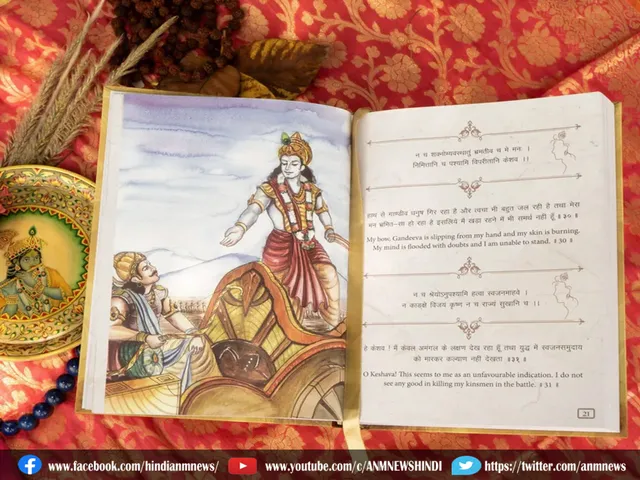 न च शक्नोम्यवस्थातुं भ्रमतीव च मे मनः ।
निमित्तानि च पश्यामि विपरीतानि केशव ।।
हाथ से गाण्डीव धनुष गिर रहा है और त्वचा भी बहुत जल रही है तथा मेरा
मन भ्रमित-सा हो रहा है इसलिये मैं खड़ा रहने में भी समर्थ नहीं हूँ ॥३०॥
My bow, Gandeeva is slipping from my hand and my skin is burning.
My mind is flooded with doubts and I am unable to stand. ॥30॥
न च श्रेयोऽनुपश्यामि हत्वा स्वजनमाहवे ।
न काङ्क्षे विजयं कृष्ण न च राज्यं सुखानि च ।।
हे केशव ! मैं केवल अमंगल के लक्षण देख रहा हूँ तथा युद्ध में स्वजनसमुदाय
को मारकर कल्याण नहीं देखता ॥३१॥
O Keshava! This seems to me as an unfavourable indication. I do not
see any good in killing my kinsmen in the battle. ॥31॥
21
www.facebook.com/hindianmnews/ www.youtube.com/c/ANMNEWSHINDI https://twitter.com/anmnews